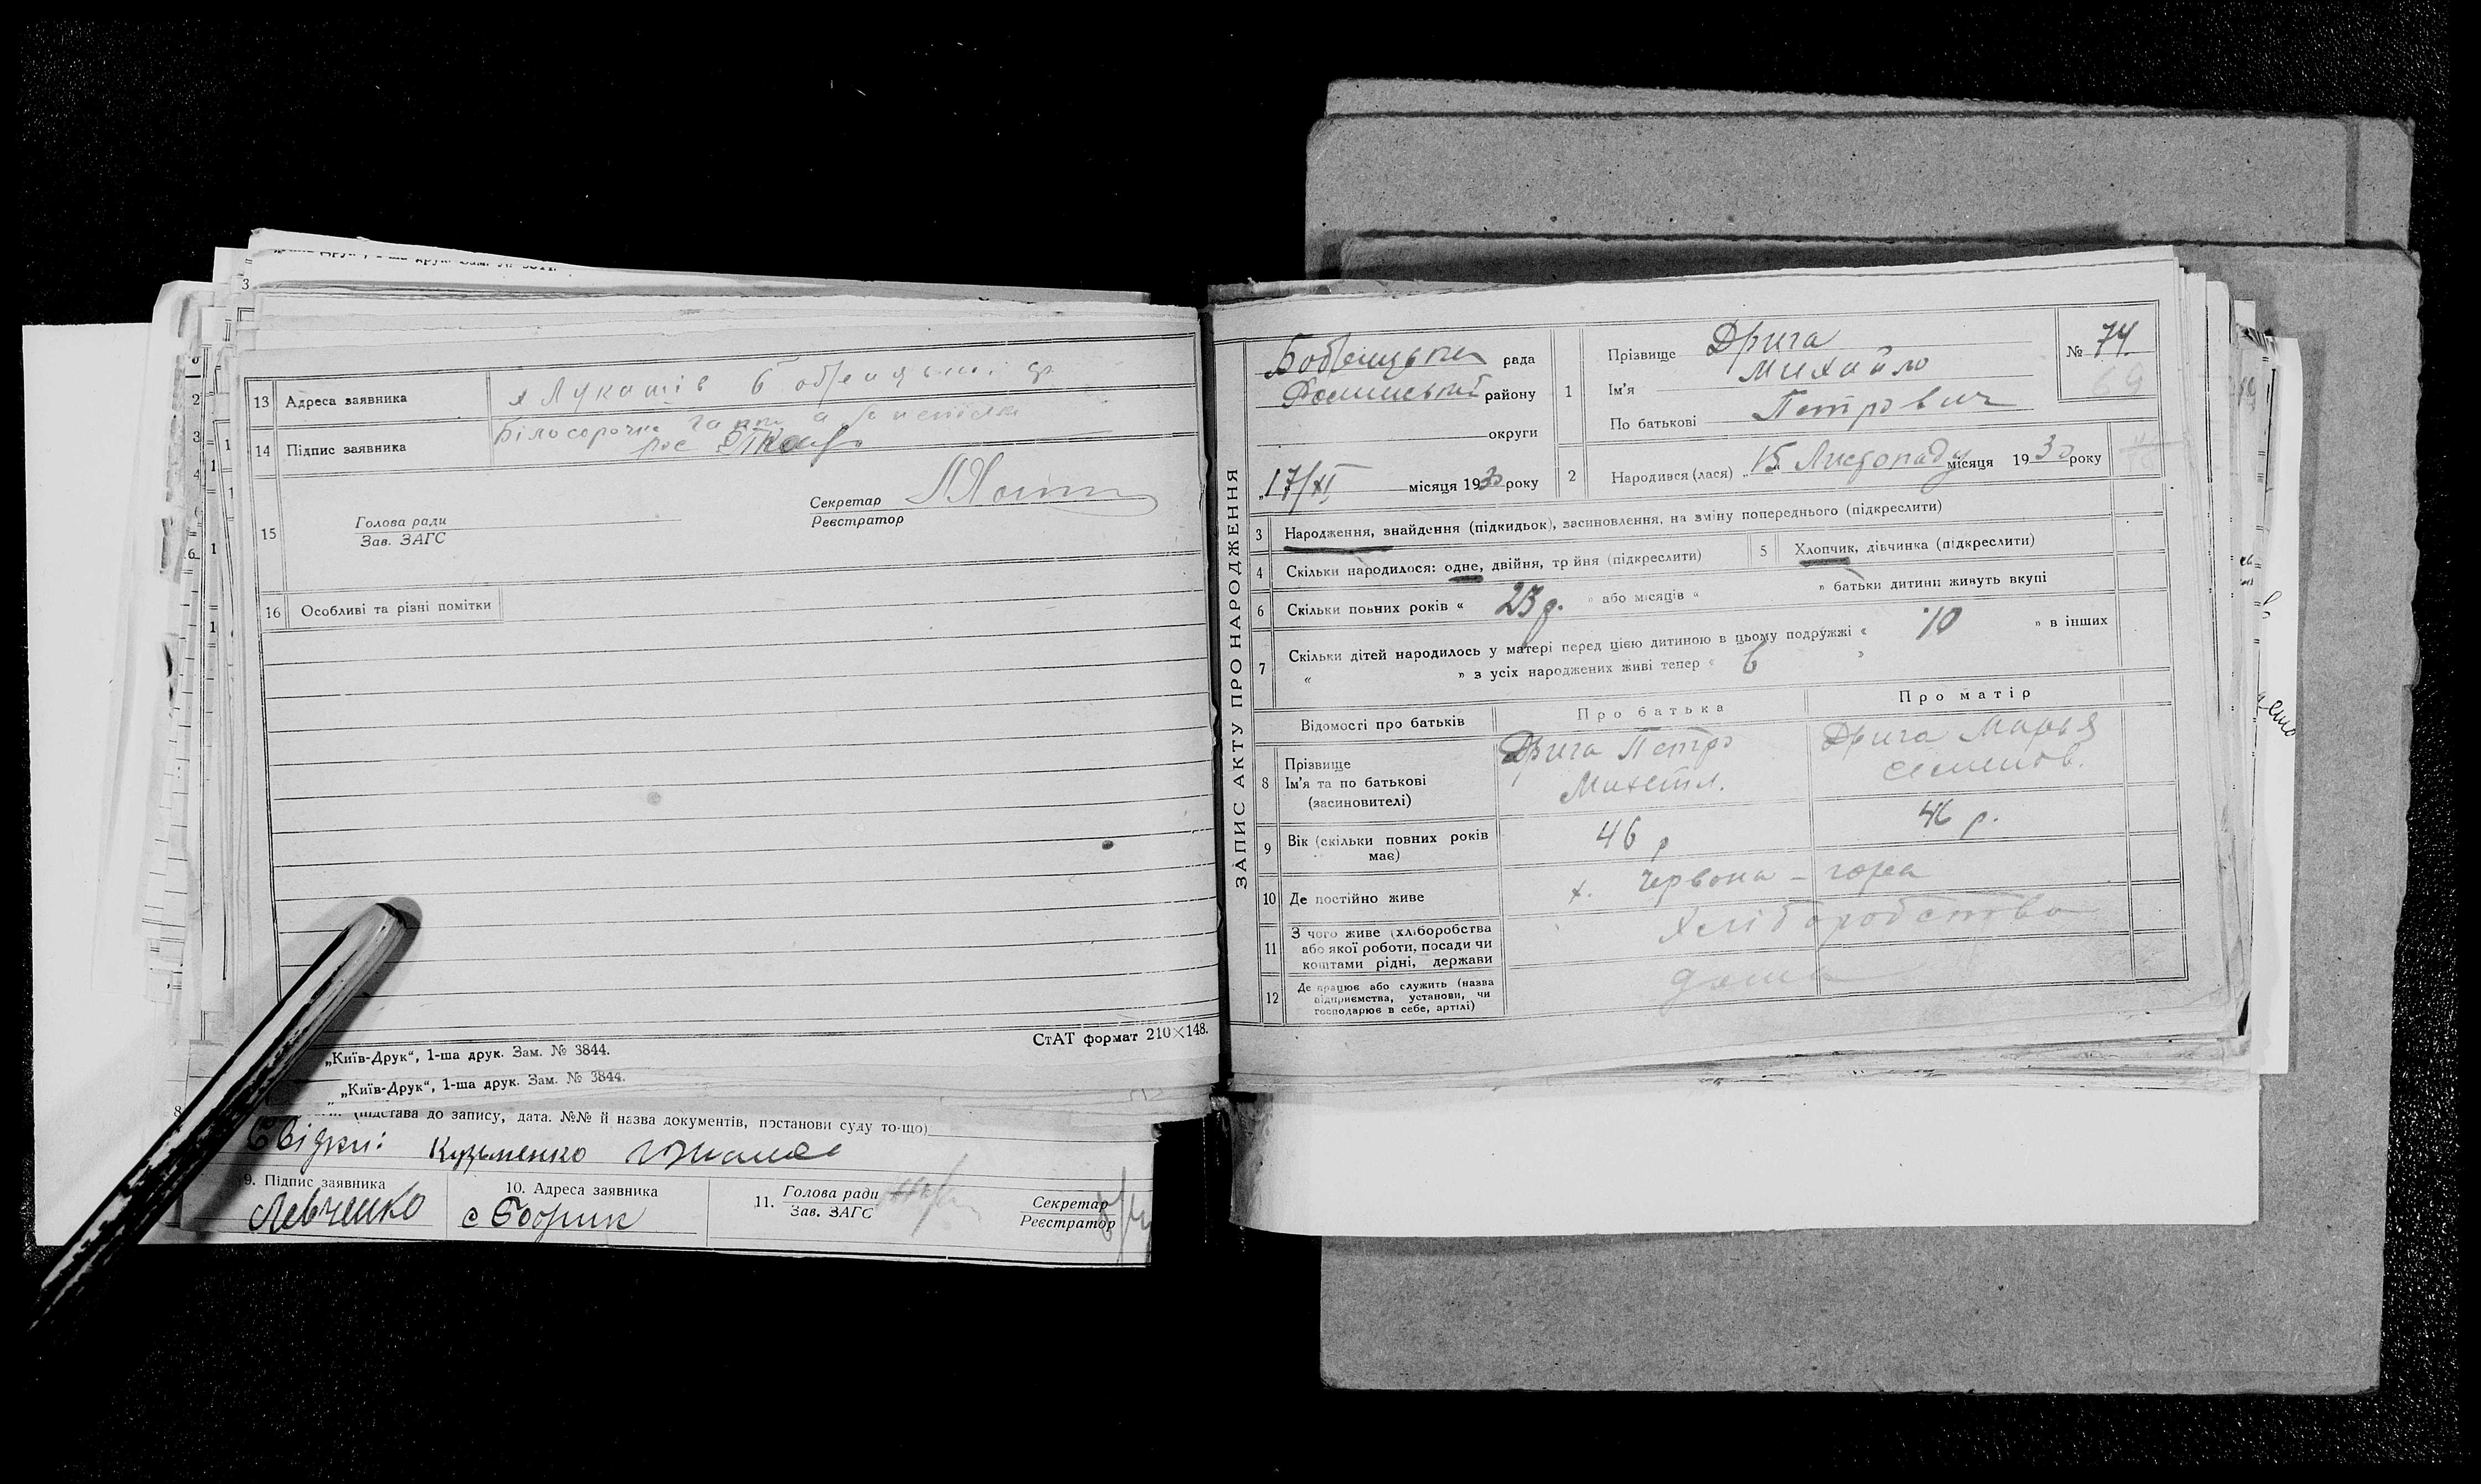 13 Адреса заявника х Лукашів
14 Підпис заявника Білосорочка
15 Голова ради
Зав. ЗАГС
Секретар
Реєстратор
16 Особливі та різні помітки
СтАТ формат 210×148.
„Київ-Друк“, 1-ша друк. Зам. № 3844.
„Київ-Друк“, 1-ша друк. Зам. № 3844.
(підстава до запису, дата. №№ й назва документів, постанови суду то-що)
Свідки: Кузьменко
9. Підпис заявника
Левченко
10. Адреса заявника
с Бобрик
11. Голова ради
Зав. ЗАГС
Секретар
Реєстратор
ЗАПИС АКТУ ПРО НАРОДЖЕННЯ
рада
району
округи
„17/XI місяця 1930 року
1 Прізвище Дрига
Ім'я Михайло
По батькові Петрович
№ 74.
69
2 Народився (лася) „15 Листопаду місяця 1930 року
3 Народження, знайдення (підкидьок), засиновлення, на зміну попереднього (підкреслити)
4 Скільки народилося: одне, двійня, трійня (підкреслити)
5 Хлопчик, дівчинка (підкреслити)
6 Скільки повних років « 23 р. » або місяців « » батьки дитини живуть вкупі
7 Скільки дітей народилось у матері перед цією дитиною в цьому подружжі « 10 » в інших
« » з усіх народжених живі тепер « 6 »
Відомості про батьків Про батька Про матір
8 Прізвище
Ім'я та по батькові
(засиновителі)
Дрига Петро
Дрига Марья
Семенов.
9 Вік (скільки повних років має) 46 р 46 р.
10 Де постійно живе х. Червона – гора
11 З чого живе (хліборобства
або якої роботи, посади чи
коштами рідні, держави
Хліборобство
12 Де працює або служить (назва
підприємства, установи, чи
господарює в себе, артілі)
дома